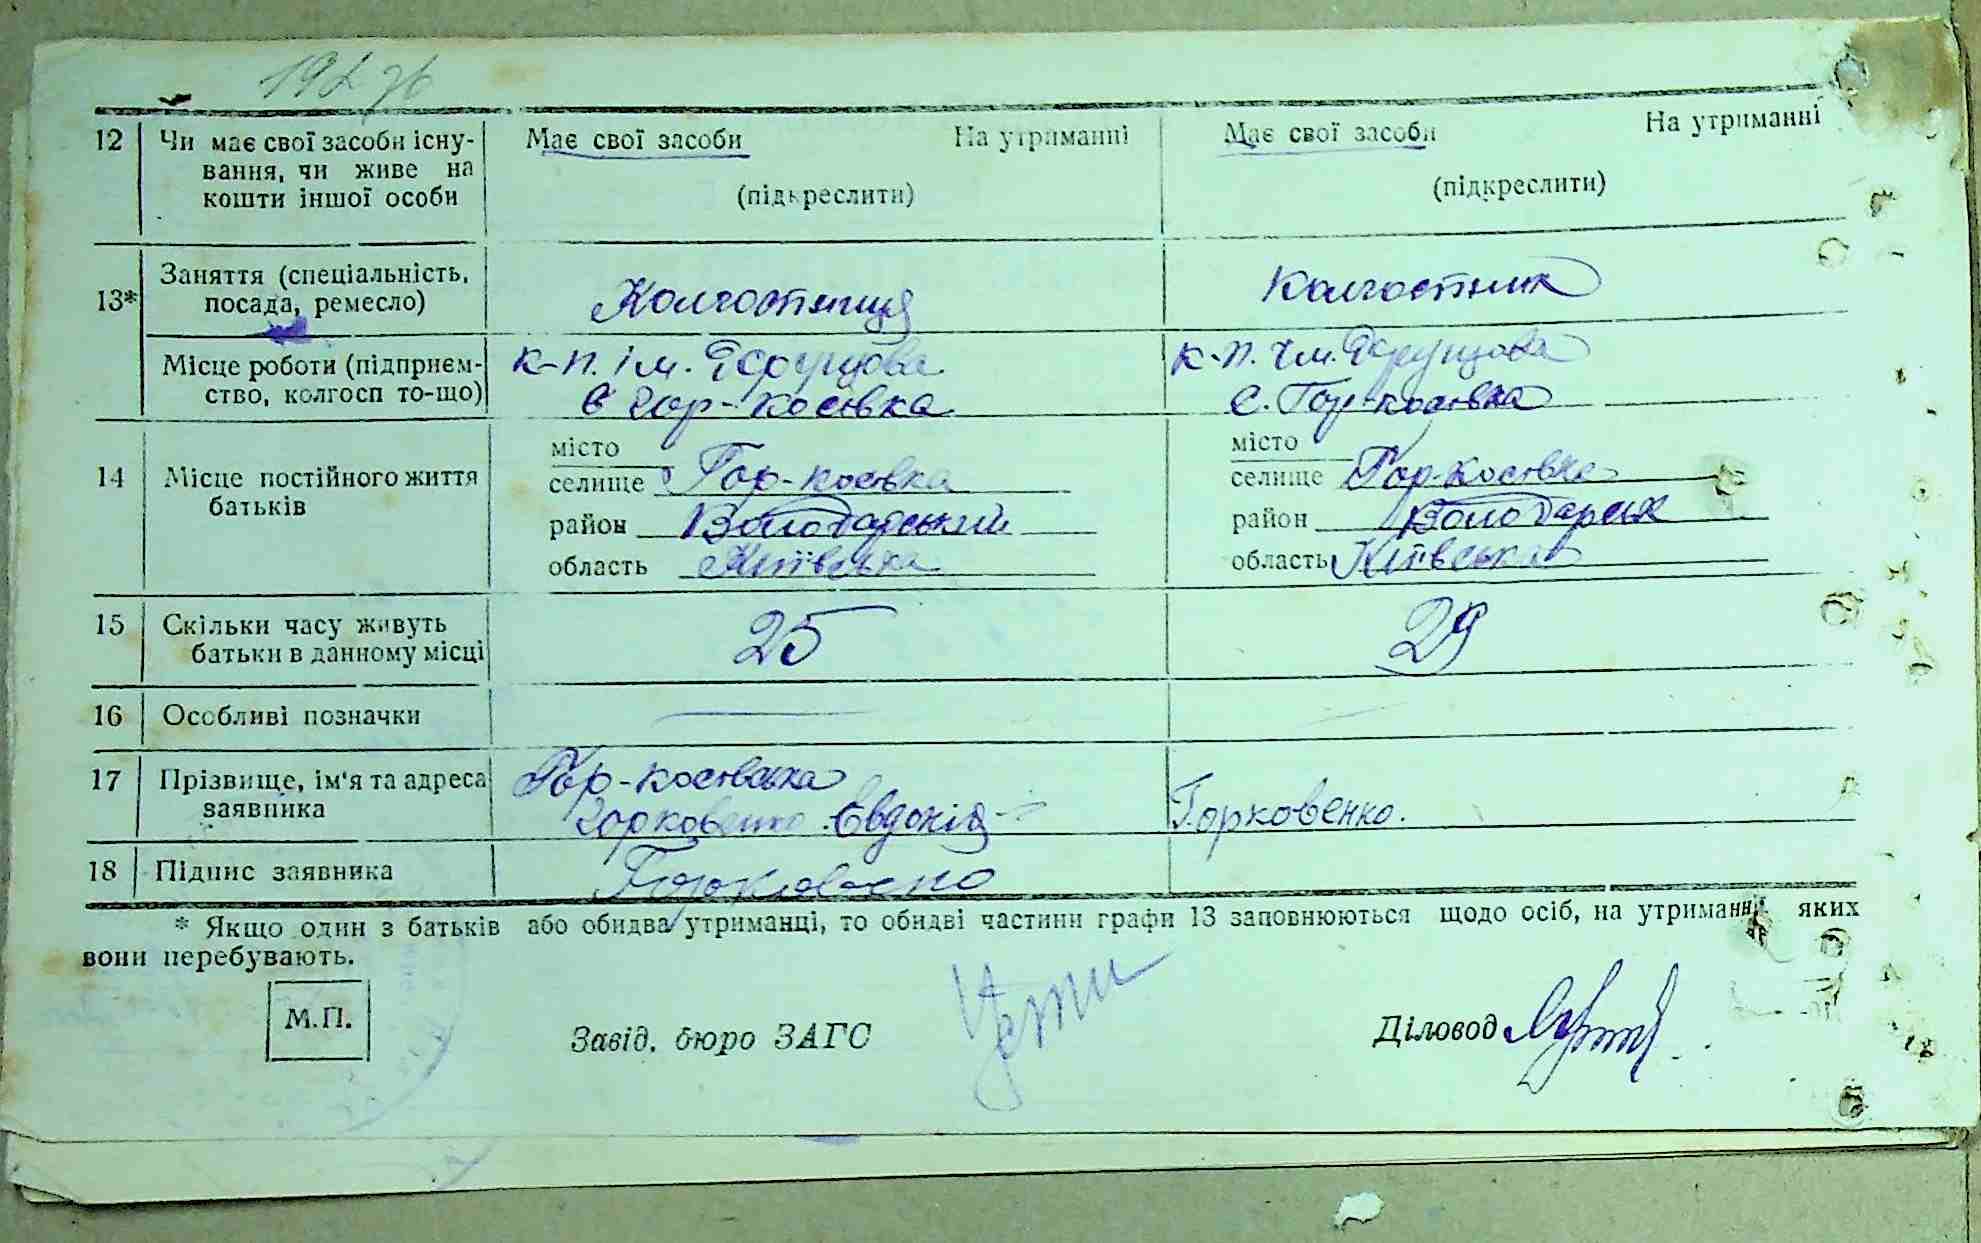 12 Чи має свої засоби існу- Має свої засоби На утриманні Має свої засоби На утриманні
вання, чи живе на
кошти іншої особи (підкреслити) (підкреслити)
13* Заняття (спеціальність, Колгоспниця Колгостник
посада, ремесло)
Місце роботи (підприєм- к-п. ім. к-п. ім.
ство, колгосп то-що) Гор-косівка с. Гор-косівка
14 Місце постійного життя
батьків
місто місто
селище Гор-косівка селище Гор-косівка
район Володарський район
область Київська область Київська
15 Скільки часу живуть 25 29
батьки в данному місці
16 Особливі позначки
17 Прізвище, ім'я та адреса
заявника Горковенко Євдокія Горковенко.
18 Підпис заявника Горковенко
* Якщо один з батьків або обидва утриманці, то обидві частини графи 13 заповнюються щодо осіб, на утриманні яких
вони перебувають.
М.П. Завід. бюро ЗАГС Діловод